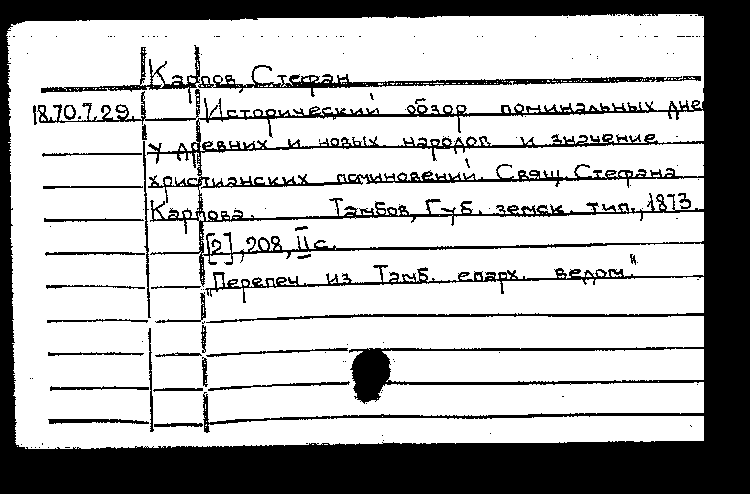 Карпов, Стефан
18.70.7.29. Исторический обзор поминальных дне
у древних и новых народов и значение
христианских поминовений. Свящ. Стефана
Карпова. Тамбов, Губ. земск. тип., 1873.
[2], 208, II с.
"Перепеч. из Тамб. епарх. ведом."